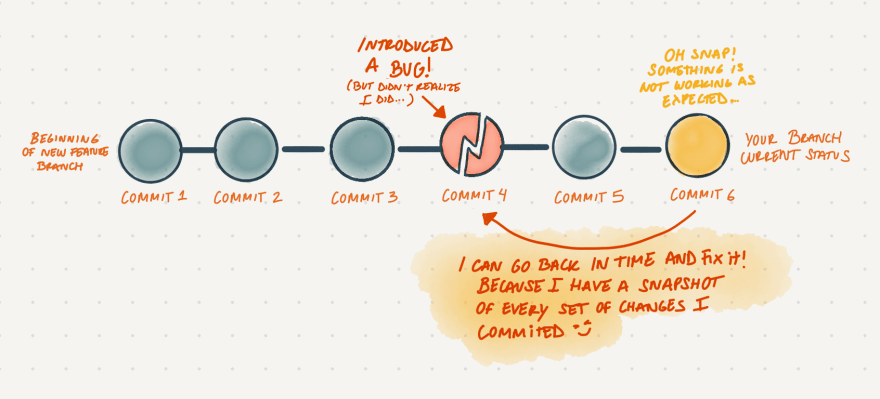 INTRODUCED
A BUG!
(BUT DIDN'T REALIZE
I DID...)
OH SNAP!
SOMETHING IS
NOT WORKING AS
EXPECTED...
BEGINNING
OF NEW FEATURE
BRANCH
YOUR BRANCH
CURRENT STATUS
COMMIT 1
COMMIT 2
COMMIT 3
COMMIT 4
COMMIT 5
COMMIT 6
I CAN GO BACK IN TIME AND FIX IT!
BECAUSE I HAVE A SNAPSHOT
OF EVERY SET OF CHANGES I
COMMITED